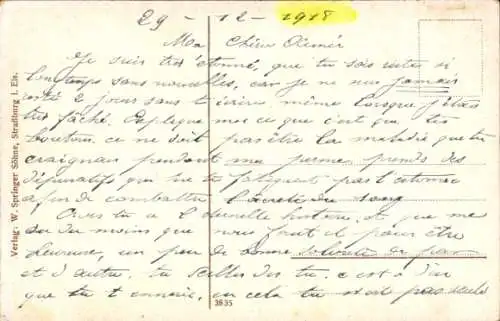 29 - 12 - 1918
Ma Chère Aimée
Je suis très étonné, que tu sois restée si
longtemps sans nouvelles, car je ne suis jamais
resté 2 jours sans t'écrire même lorsque j'étais
très fâché. Explique moi ce que c'est que tes
boutons, ce ne doit pas être la maladie que tu
craignais pendant ma perme, prends des
dépuratifs qui ne te fatiguent pas l'estomac
afin de combattre l'âcreté du sang
tu à l'éternelle histoire. Et que me
du moins que nous faut il pour être
heureuse, un peu de bonne volonté de part
et d'autre, tu c'est à dire
que tu t'ennuies, en cela tu pas seule
Verlag: W. Springer Söhne, Straßburg i. Els.
3835